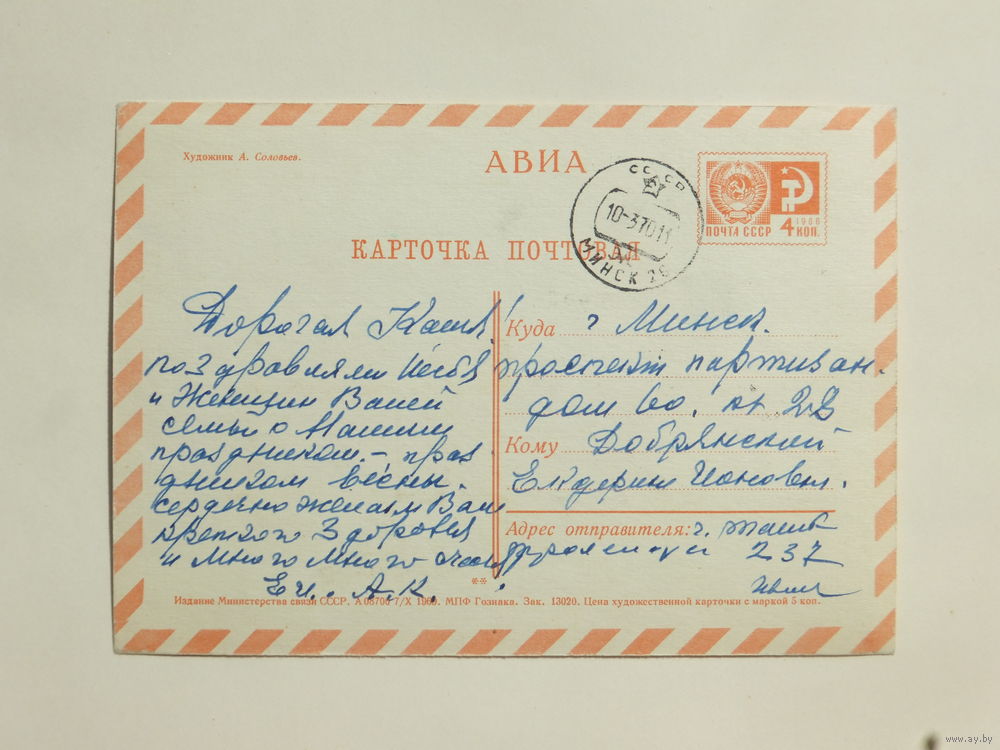 Художник А. Соловьев.
АВИА
СССР
10-370.11
МИНСК 26
1966
ПОЧТА СССР 4 КОП.
КАРТОЧКА ПОЧТОВАЯ
Дорогая Катя!
поздравляем тебя
и Женщин Вашей
семьи с Нашим
праздником. – праз
дником весны.
сердечно желаем Вам
крепкого Здоровья
и много много
А.К.
Куда г Минск.
проспект партизан.
дом 60. кв. 22
Кому Добрянской
Адрес отправителя: г.
237
Издание Министерства связи СССР. А 08700 7/X 1969. МПФ Гознака. Зак. 13020. Цена художественной карточки с маркой 5 коп.
www.ay.by